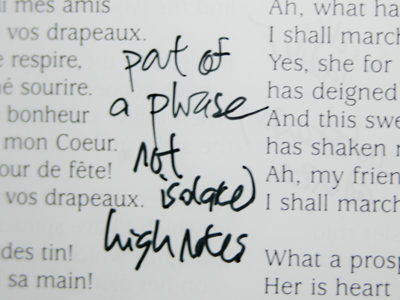 mes amis
vos drapeaux.
respire,
sourire.
bonheur
mon Coeur.
our de fête!
vos drapeaux.
des tin!
sa main!
part of
a phrase
not
isolated
high notes
Ah, what ha
I shall march
Yes, she for
has deigned
And this swe
has shaken
Ah, my frien
I shall march
What a prosp
Her is heart